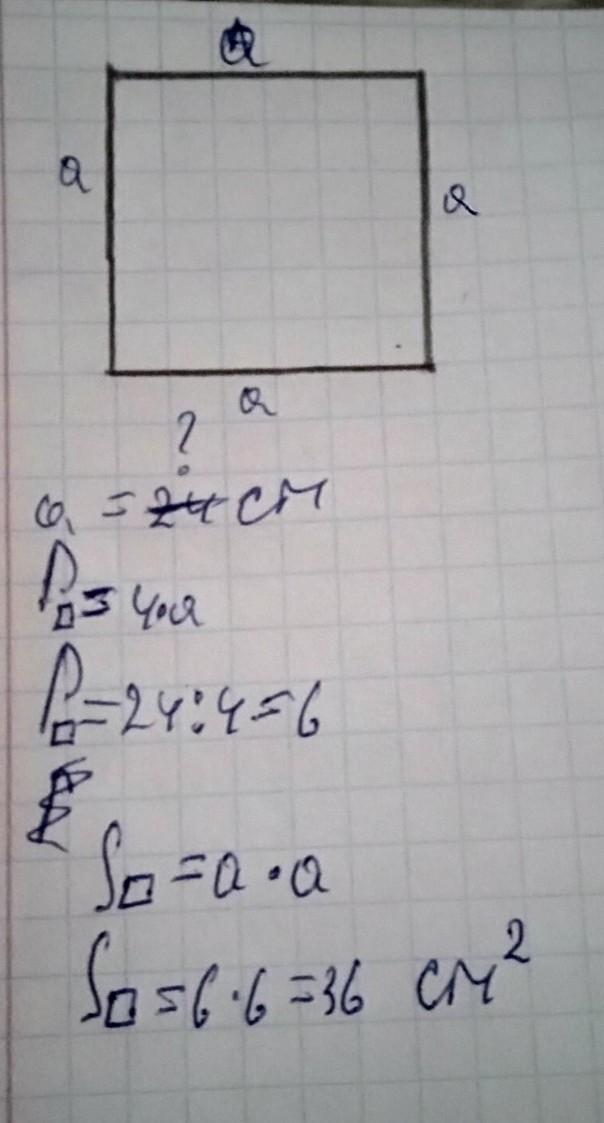 a
a
a
a
?
a = 24 см
P□ = 4·a
P□ = 24:4 = 6
S□ = a · a
S□ = 6 · 6 = 36 см²